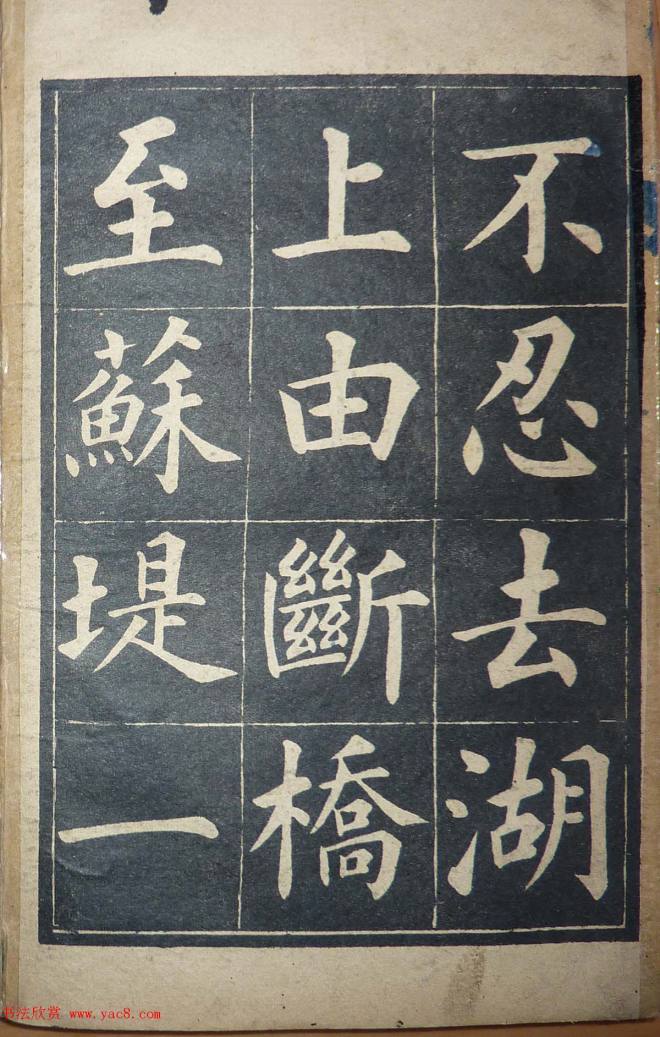 不忍去湖
上由斷橋
至蘇堤一
书法欣赏 www.yac8.com